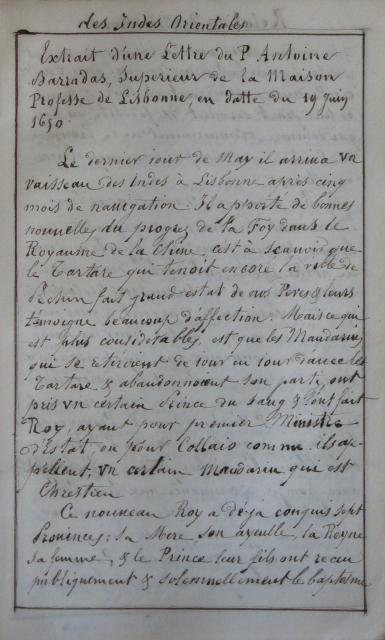 des Indes Orientales
Extrait d'une Lettre du P. Antoine
Barradas, Superieur de la Maison
Professe de Lisbonne, en datte du 19 Juin
1650.
Le dernier iour de May il arriua vn
vaisseau des Indes à Lisbonne apres cinq
mois de nauigation. Il apporte de bonnes
nouuelles du progrez de la Foy dans le
Royaume de la Chine, c'est à scauoir que
le Tartare qui tenoit encore la ville de
Pechin fait grand estat de nos Peres & leurs
temoigne beaucoup d'affection. Mais ce qui
est plus considerable, est que les Mandarins
qui se retiroient de iour en iour d'auec les
Tartare, & abandonnoient son parti, ont
pris vn certain Prince du Sang & l'ont fait
Roy, ayant pour premier Ministre
d'Estat, ou pour Collaio comme ils ap-
pellent, vn certain Mandarin qui est
Chretien
Ce nouueau Roy a deja conquis sept
Prouinces: sa Mere, son ayeulle, la Reyne
sa femme, & le Prince leur fils ont receu
publiquement & solemnellement le baptesme